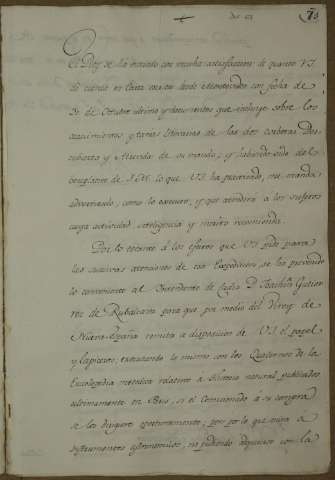 78
El Rey se ha enterado con mucha satisfaccion de quanto VS.
dá cuenta en Carta escrita desde Montevideo con fecha de
31 de Octubre ultimo y documentos que incluye sobre los
acaecimientos y tareas literarias de las dos Corbetas Des-
cubierta y Atrevida de su mando; y habiendo sido del
beneplacito de S.M. lo que VS. ha practicado, me manda
advertirselo, como lo executo, y que atenderá a los sujetos
cuya actividad, inteligencia y merito recomienda.
Por lo tocante á los efectos que VS. pide para
las sucesivas atenciones de la Expedicion, se ha prevenido
lo conveniente al Intendente de Cadiz D. Joachin Gutier-
rez de Rubalcava para que por medio del Virrey de
Nueva España remita a disposicion de VS. el papel
y lapiceros, executando lo mismo con los Quadernos de la
Enciclopedia metodica relativos á Historia natural publicados
ultimamente en Paris, si el Comisionado a su compra
se los dirigiere oportunamente; pero por lo que mira a
instrumentos astronomicos, no pudiendo adquirirse con la